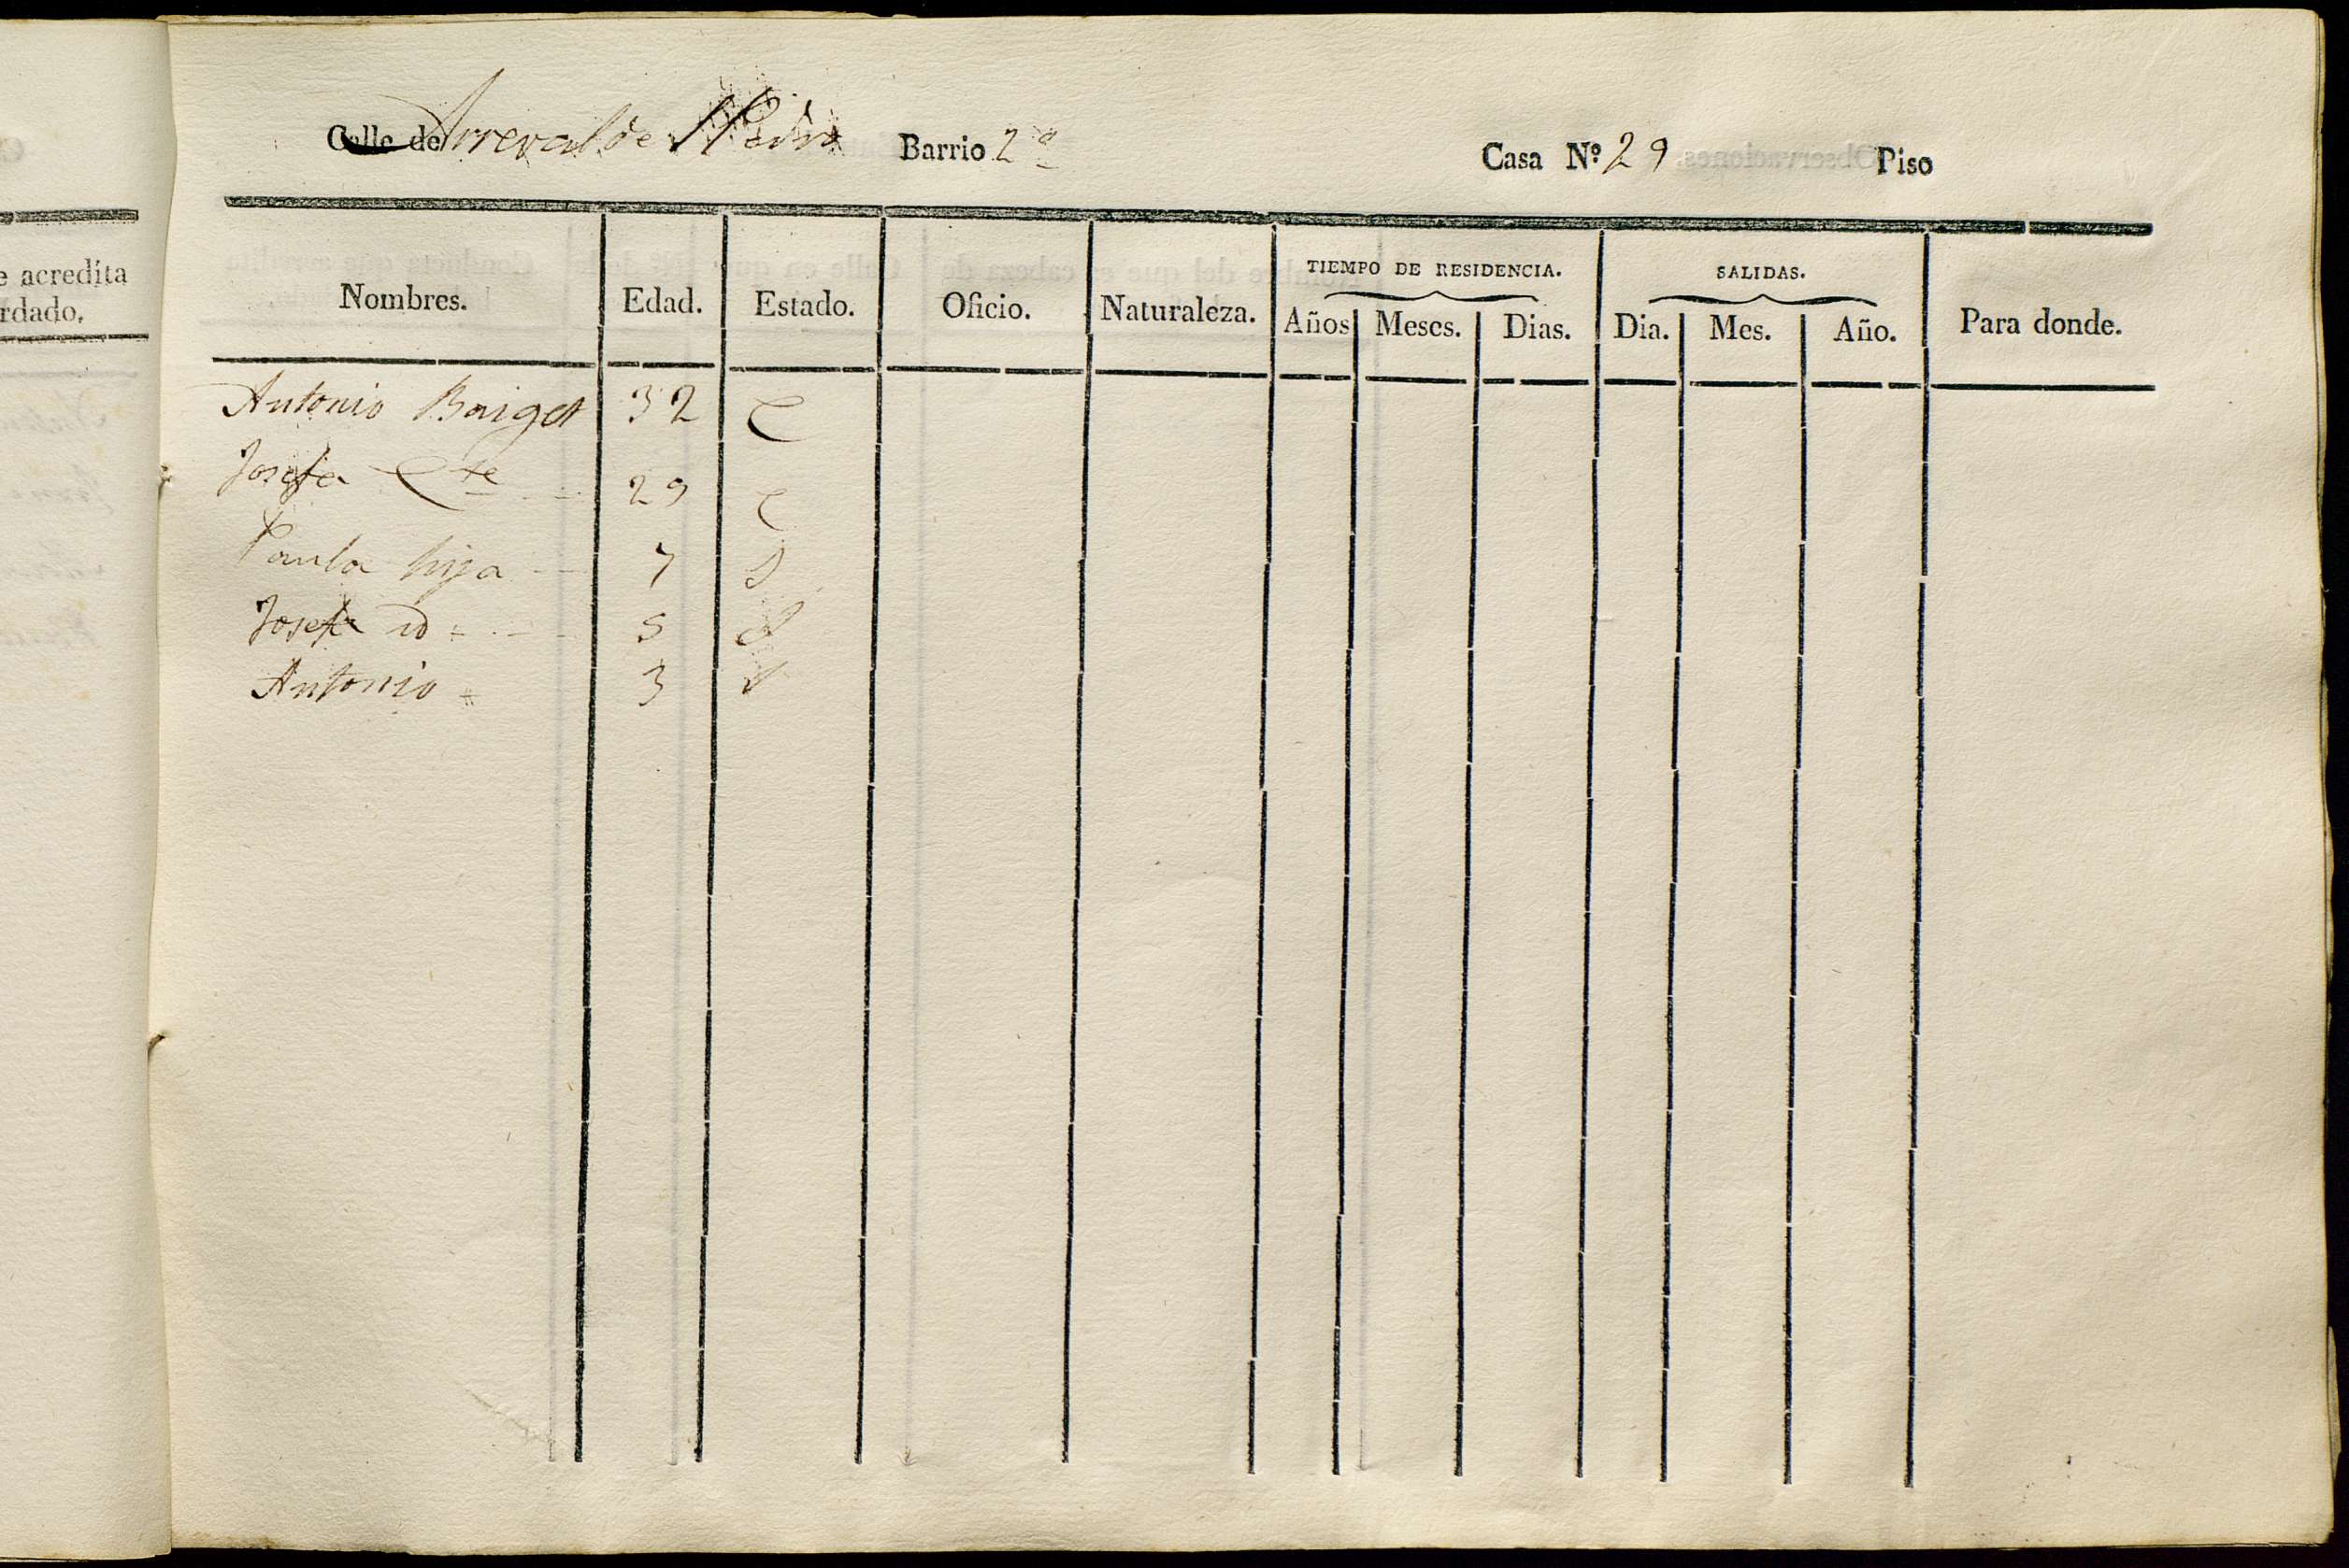 e acredita
rdado,
Calle de Arreval de S Pedro Barrio 2º Casa Nº 29 Piso
Nombres. Edad. Estado. Oficio. Naturaleza. TIEMPO DE RESIDENCIA. SALIDAS. Para donde.
Años Meses. Dias. Dia. Mes. Año.
Antonio Baiget 32 C
Josefa Cte 29 C
Paula hija 7 S
Josefa id 5 S
Antonio 3 S